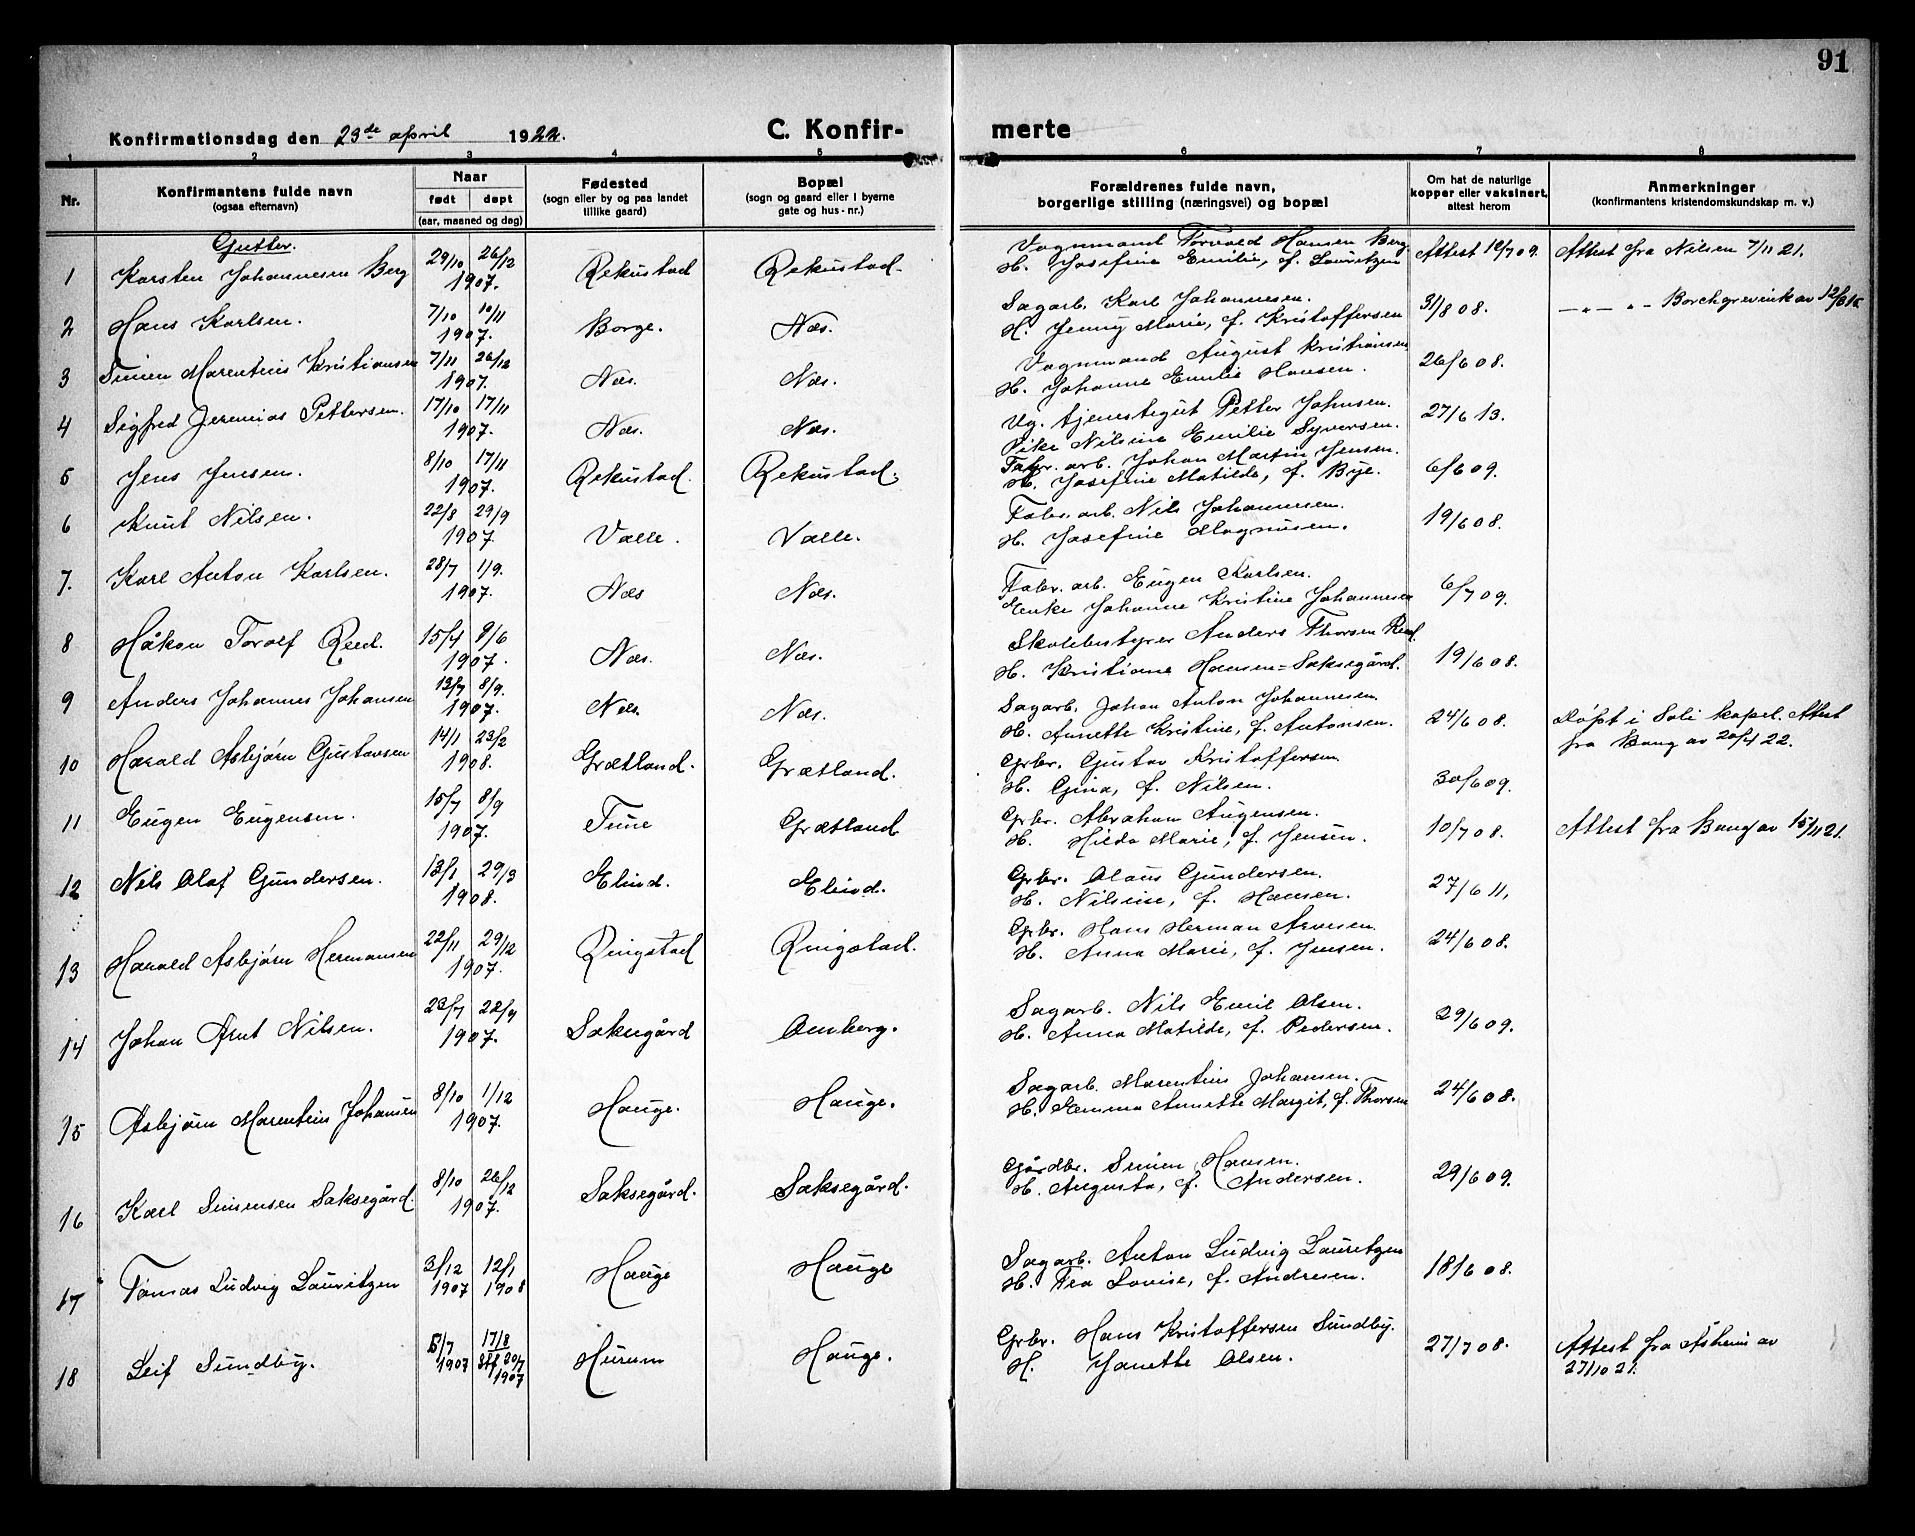 91
Konfirmationsdag den 23de april 1922. C. Konfir- merte
1 2 3 4 5 6 7 8
Nr. Konfirmantens fulde navn (ogsaa efternavn) Naar født døpt (aar, maaned og dag) Fødested (sogn eller by og paa landet tillike gaard) Bopæl (sogn og gaard eller i byerne gate og hus-nr.) Forældrenes fulde navn, borgerlige stilling (næringsvei) og bopæl Om hat de naturlige kopper eller vaksinert, attest herom Anmerkninger (konfirmantens kristendomskundskap m. v.)
Gutter.
1 Karsten Johannesen Berg 29/10 26/12 1907. Rekustad Rekustad. Vognmand Torvald Hansen Berg. Attest 12/7 09. Attest fra Nilsen 7/11 21.
H. Josefine Emilie, f. Lauritzen
2 Hans Karlsen. 7/10 10/11 1907. Borge. Næs. Sagarb. Karl Johannesen. 31/8 08. — „ — „ - Borchgrevink av
H. Jenny Marie, f. Kristoffersen
3 Simen Marentius Kristiansen 7/11 26/12 1907. Næs. Næs. Vognmand August Kristiansen 26/6 08.
H. Johanne Emilie Hansen.
4 Sigfred Jeremias Pettersen. 17/10 17/11 1907. Næs. Næs. Ug. tjenestegut Petter Johnsen. 27/6 13.
Pike Nilsine Emilie Syversen.
5 Jens Jensen. 8/10 17/11 1907. Rekustad. Rekustad. Fabr. arb. Johan Martin Jensen. 6/6 09.
H. Josefine Matilde, f. Bye.
6 Knut Nilsen. 22/8 29/9 1907. Valle. Valle. Fabr. arb. Nils Johannesen. 19/6 08.
H. Josefine Magnusen.
7. Karl Anton Karlsen. 28/7 1/9. 1907. Næs Næs. Fabr. arb. Eugen Karlsen. 6/7 09.
Enke Johanne Kristine Johannesen
8 Håkon Torolf Reed. 15/4 9/6 1907. Næs. Næs. Skolebestyrer Anders Thorsen Reed. 19/6 08.
H. Kristiane Hansen=Saksegård.
9 Anders Johannes Johansen 13/7 8/9. 1907. Næs. Næs. Sagarb. Johan Anton Johannesen. 24/6 08. Døpt i Soli kapel. Attest
H. Annette Kristine, f. Antonsen. fra Bang av 20/4 22.
10 Harald Asbjørn Gustavsen 14/1 23/2 1908. Grætland. Grætland. Grbr. Gustav Kristoffersen 30/6 09.
H. Gina, f. Nilsen.
11 Eugen Eugensen. 15/7 8/9 1907. Tune Grætland Grbr. Abraham Augensen. 10/7 08. Attest fra Bang av 15/11 21.
H. Hilda Marie, f. Jensen.
12 Nils Olaf Gundersen. 13/1 29/3 1908. Elind. Elind. Grbr. Olaus Gundersen. 27/6 11.
H. Nilsine, f. Hansen.
13 Harald Asbjørn Hermansen 22/11 29/12 1907. Ringstad Ringstad. Grbr. Hans Herman Arnesen. 24/6 08.
H. Anna Marie, f. Jensen.
14 Johan Arnt Nilsen. 23/7 22/9 1907. Saksegård Omberg. Sagarb. Nils Emil Olsen. 29/6 09.
H. Anna Matilde, f. Pedersen.
15 Asbjørn Marentius Johansen 8/10 1/12 1907. Hauge. Hauge. Sagarb. Marentius Johansen. 24/6 08.
H. Emma Annette Margit, f. Thorsen
16 Karl Simensen Saksegård. 8/10 26/12 1907. Saksegård. Saksegård. Gårdbr. Simen Hansen. 29/6 09.
H. Augusta, f. Andersen.
17 Tomas Ludvig Lauritzen 3/12 1907 12/1 1908 Hauge Hauge Sagarb. Anton Ludvig Lauritzen 18/6 08.
H. Tea Lovise, f. Andresen.
18 Leif Sundby. 5/7 1907 17/8 20/7 1907 Hurum Hauge. Grbr. Hans Kristoffersen Sundby. 27/7 08. Attest fra Åsheim av
H. Janette Olsen. 27/10 21.